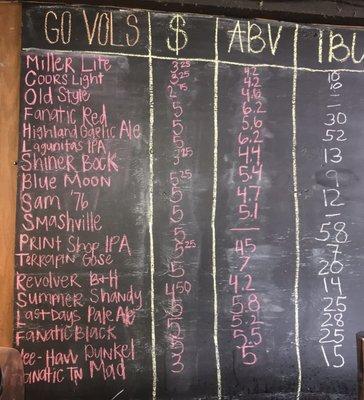 GO VOLS $ ABV IBU
Miller Lite 3²⁵ 4.2
Coors Light 3²⁵ 4.2
Old Style 2¹⁵
Fanatic Red 5 6.2 30
Highland Gaelic Ale 5 5.6 52
Lagunitas IPA 5 6.2
Shiner Bock 3²⁵ 4.4 13
Blue Moon 5²⁵ 5.4 9
Sam '76 5 4.7 12
Smashville 5 5.1 –
Print Shop IPA 5 – 58
Terrapin Gose 5²⁵ 45 7
Revolver B+H 5 7 20
Summer Shandy 4⁵⁰ 4.2 14
Last Days Pale Ale 5 5.8 25
Fanatic Black 5 5.2 28
Yee-Haw Dunkel 5 5.5 25
Fanatic TN Mad 3 5 15